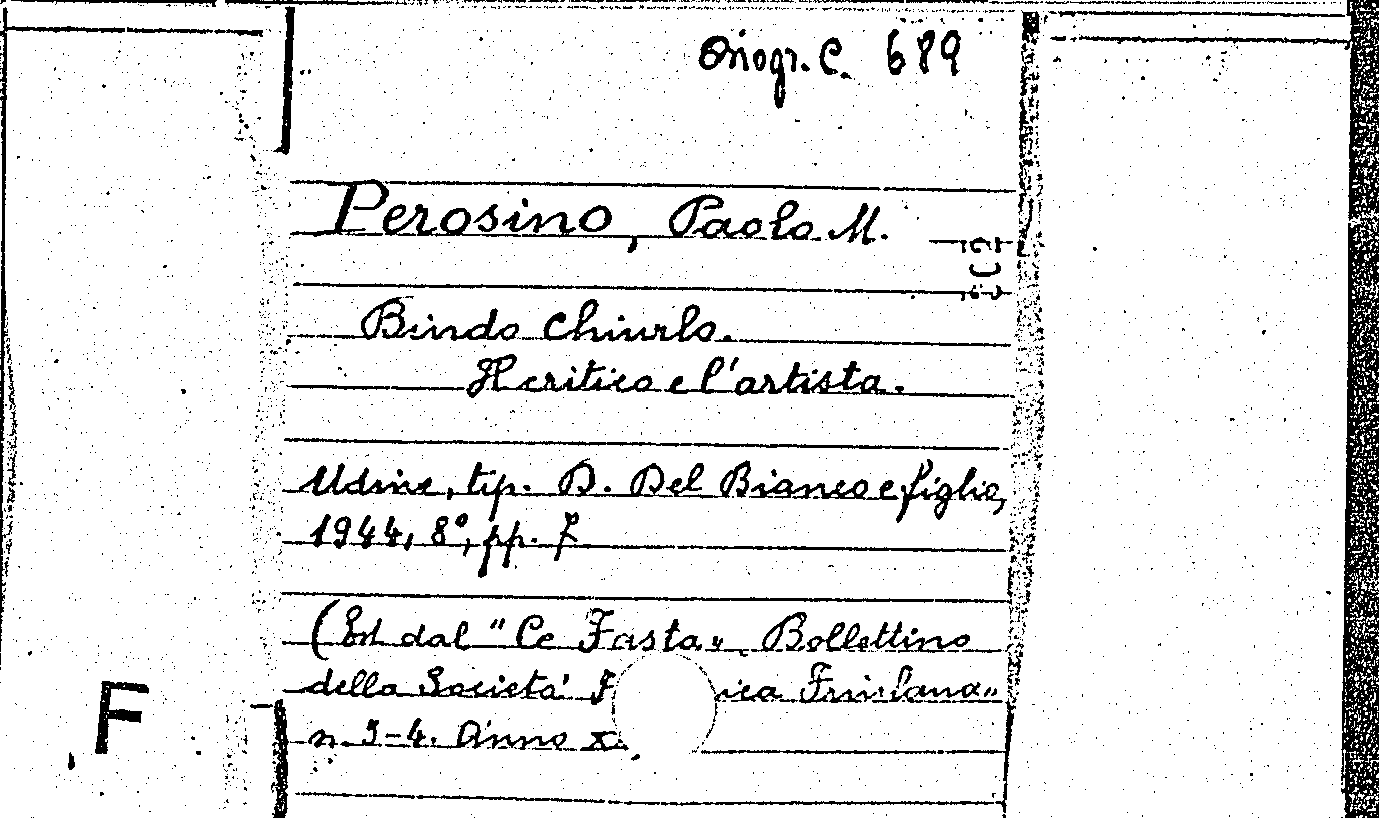 Miogr. C. 689
Perosino, Paolo M.
Bindo Chiurlo.
Il critico e l'artista.
Udine, tip. D. Del Bianco e figlio,
1944, 8°, pp. 7
(Est. dal "Ce Fastu". Bollettino
della Società F ica Friulana"
n. 3-4. Anno X
F